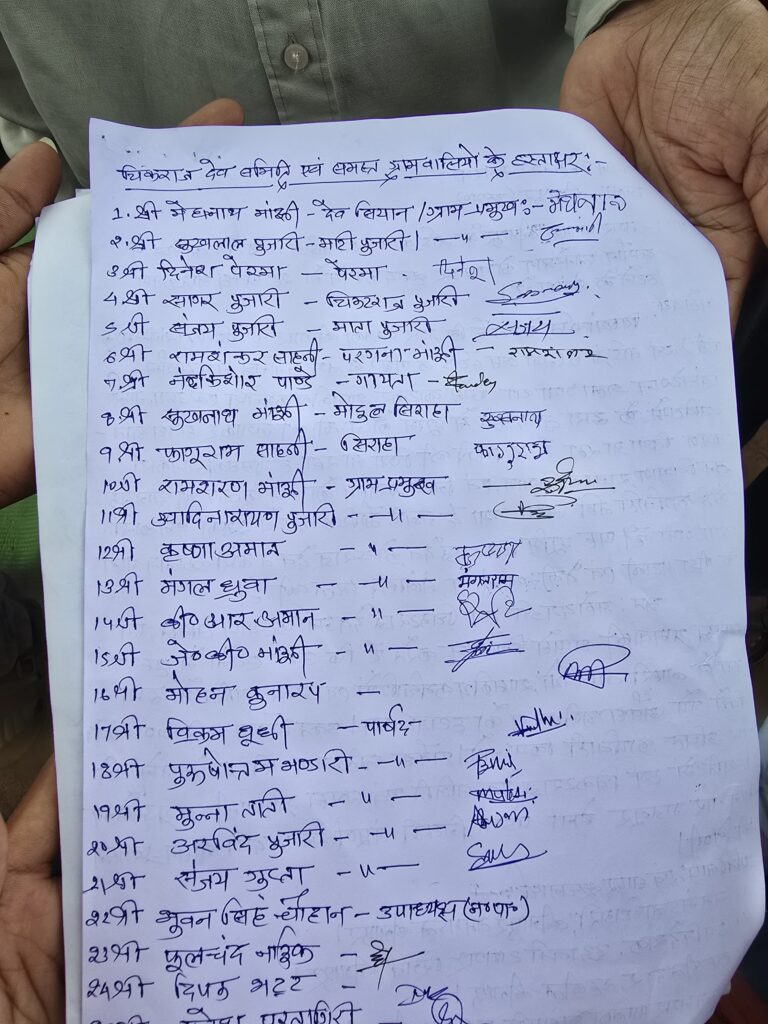 चिकटराज देव समिति एवं समस्त ग्रामवासियों के हस्ताक्षर:-
1. श्री मेघनाथ मांझी - देव सियान / ग्राम-प्रमुख:- मेघनाथ
2. श्री सुखलाल पुजारी - माटी पुजारी / - " -
3. श्री दिनेश पेरमा - पेरमा . दिनेश
4. श्री सागर पुजारी - चिकटराज पुजारी
5. श्री संजय पुजारी - माता पुजारी संजय
6. श्री रामशंकर साहनी - परगना मांझी - रामशंकर
7. श्री नंदकिशोर पाण्डे - गायता -
8. श्री सुखनाथ मांझी - सिराहा सुखनाथ
9. श्री फागूराम साहनी - सिराहा फागुराम
10. श्री रामशरण मांझी - ग्राम-प्रमुख -
11 श्री आदिनारायण पुजारी - -"-
12 श्री कृष्णा अमान - " -
13 श्री मंगल ध्रुवा - -"- मंगलराम
14 श्री बी० आर. अमान - " -
15 श्री जे० बी० मांझी - " -
16 श्री मोहन -
17 श्री विक्रम दूधी - पार्षद
18 श्री पुरूषोत्तम भण्डारी - -"-
19 श्री मुन्ना ताती - " -
20 श्री अरविंद पुजारी - -"-
21 श्री संजय गुप्ता - " -
22 श्री भुवन सिंह चौहान - उपाध्यक्ष (न०पा०)
23 श्री फूलचंद नाईक -
24 श्री दिपक भट्ट -